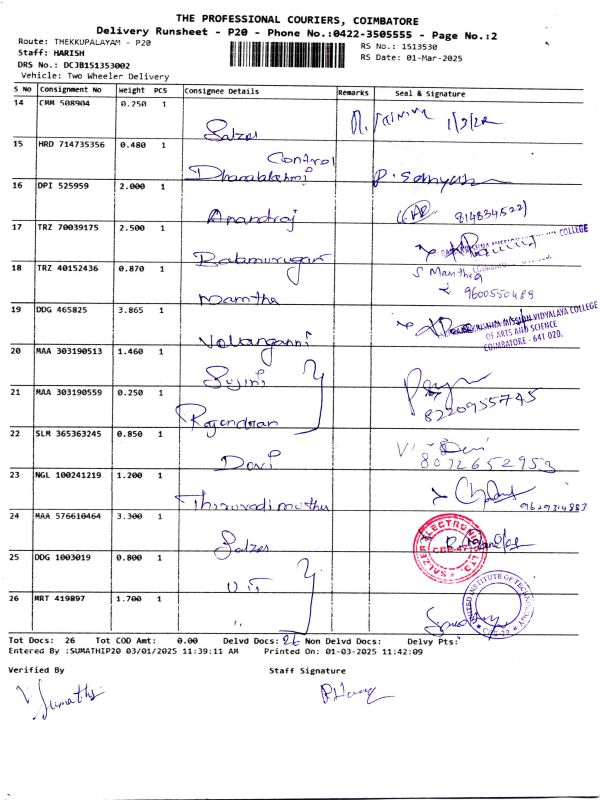 THE PROFESSIONAL COURIERS, COIMBATORE
Delivery Runsheet - P20 - Phone No.:0422-3505555 - Page No.:2
Route: THEKKUPALAYAM - P20
RS No.: 1513530
Staff: HARISH
RS Date: 01-Mar-2025
DRS No.: DCJB151353002
Vehicle: Two Wheeler Delivery
S No Consignment No Weight PCS Consignee Details Remarks Seal & Signature
14 CMM 508904 0.250 1
Salzer
15 HRD 714735356 0.480 1
Control
Dhanalakshmi
16 DPI 525959 2.000 1
Anandraj
17 TRZ 70039175 2.500 1
MISSION VIDYALAYA COLLEGE
Balamurugan
18 TRZ 40152436 0.870 1
S Mamtha
9600550489
Mamtha
19 DDG 465825 3.865 1
MISSION VIDYALAYA COLLEGE
OF ARTS AND SCIENCE
COIMBATORE - 641 020.
20 MAA 303190513 1.460 1
Sujini
21 MAA 303190559 0.250 1
8220955745
Rajendran
22 SLM 365363245 0.850 1
Devi
8072652953
23 NGL 100241219 1.200 1
9629314883
Thiruvadi muthu
24 MAA 576610464 3.300 1
Salzer
SALZER ELECTRONICS LTD.
25 DDG 1003019 0.800 1
UIT
UNITED INSTITUTE OF TECHNOLOGY
26 MRT 419897 1.700 1
"
Tot Docs: 26 Tot COD Amt: 0.00 Delvd Docs: 26 Non Delvd Docs: Delvy Pts:
Entered By :SUMATHIP20 03/01/2025 11:39:11 AM Printed On: 01-03-2025 11:42:09
Verified By Staff Signature
V. Sumathi